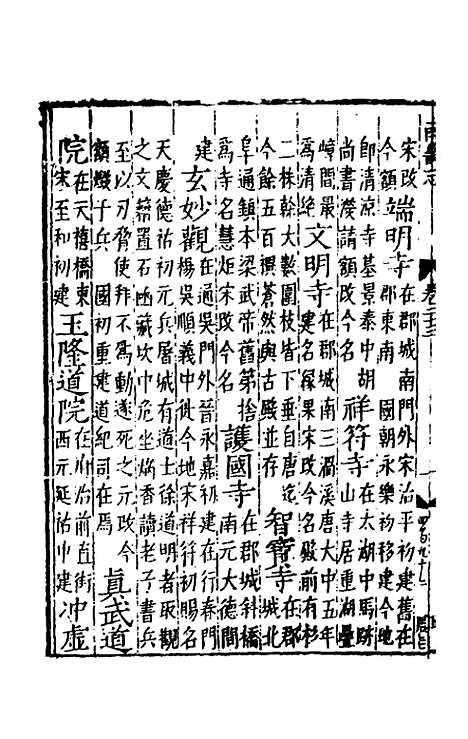 宋改今額端明寺在郡城南門外宋治平初建舊在郡東南 國朝永樂初移建今地
即清凉寺基景泰中胡尚書濙請額改今名祥符寺在太湖中馬跡山寺居重湖疊
嶂間最為清絕文明寺在郡城南三溪唐大中五年建名釋果宋改今名殿前有杉
二株幹大數圍枝皆下垂自唐迄今餘五百禩蒼然與古殿並存智寶寺在郡城北
阜通鎮本梁武帝舊第捨為寺名慧炬宋改今名護國寺在郡城斜橋南元大德間
建玄妙觀在通吳門外晉永嘉初建在行春門楊吳順義中徙今地宋祥符初賜名
天慶德祐初元兵屠城有道士徐道明者取觀之文籍置石函藏坎中危坐焚香讀老子書兵
至以刃脅使拜不為動遂死之元改今額燬于兵 國初重建道紀司在焉真武道
院在天禧橋東宋至和初建玉隆道院在府治前直街西元延祐中建冲虛